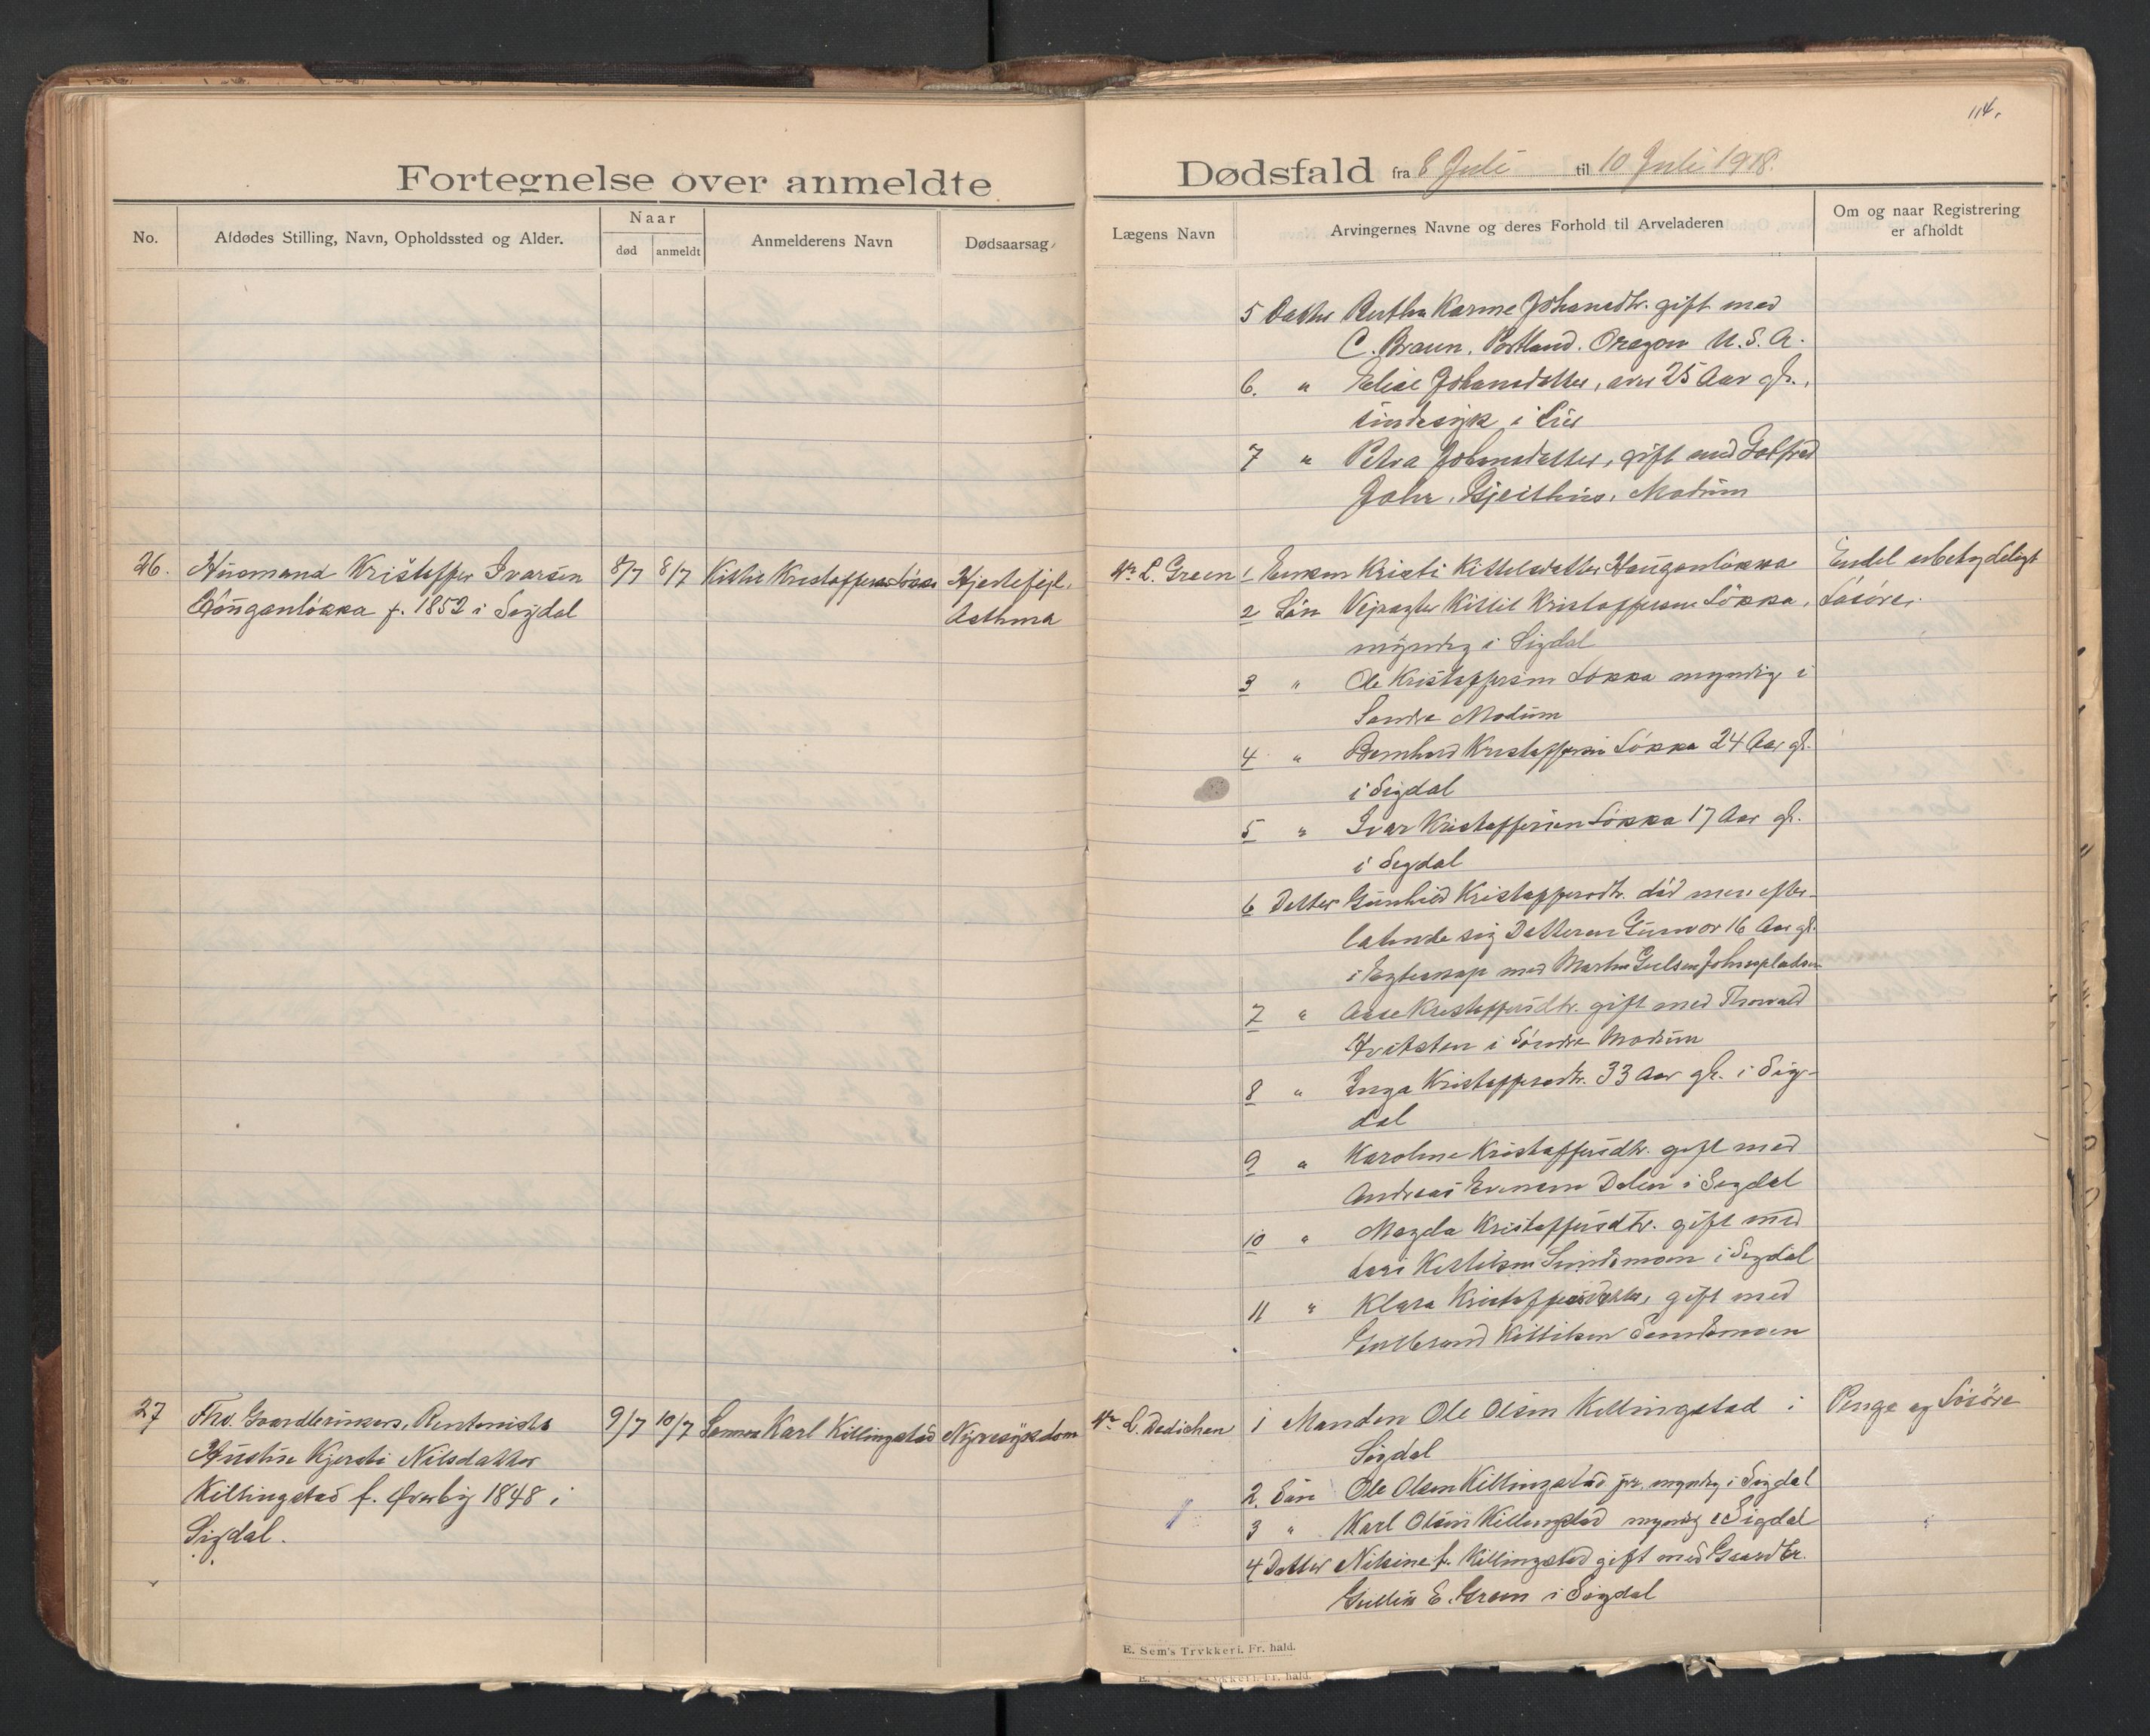 114.
Fortegnelse over anmeldte
Dødsfald fra 8 Juli til 10 Juli 1918.
No.
Afdødes Stilling, Navn, Opholdssted og Alder.
Naar
død
anmeldt
Anmelderens Navn
Dødsaarsag
Lægens Navn
Arvingernes Navne og deres Forhold til Arveladeren
Om og naar Registrering
er afholdt
5 Datter Bertha Karine Johansdtr. gift med
C. Braun, Portland. Oregon U.S.A.
6. " Elise Johansdatter, over 25 Aar gl.,
sindssyk i Lier
7 " Petra Johansdatter, gift med
Gjeithus, Modum
26. Husmand Kristoffer Ivarsen
Hauganløkka f. 1852 i Sigdal
8/7 8/7
Kittil Kristoffersen Løkka
Hjertefejl.
Asthma
L. Green
1 Enken Kristi Kittelsdatter Hauganløkka
2 Søn Kittil Kristoffersen Løkka,
myndig i Sigdal
3 " Ole Kristoffersen Løkka myndig i
Søndre Modum
4 " Bernhard Kristoffersen Løkka 24 Aar gl.
i Sigdal
5 " Ivar Kristoffersen Løkka 17 Aar gl.
i Sigdal
6 Datter Gunhild Kristoffersdtr. død men efter-
latende sig Datteren Gunvor 16 Aar gl.
i Egteskap med Martin Johnspladsen
7 " Aase Kristoffersdtr. gift med Thorvald
Hvitsten i Søndre Modum
8 " Inga Kristoffersdtr. 33 Aar gl. i Sig-
dal
9 " Karoline Kristoffersdtr. gift med
Andreas Evensen Dalen i Sigdal
10 " Magda Kristoffersdtr. gift med
Lars Kittilsen Sundsmoen i Sigdal
11 " Klara Kristoffersdatter, gift med
Gulbrand Kittilsen Sundsmoen
Endel ubetydeligt
Løsøre.
27
Fhv. Gaardbrukers, Rentenists
Hustru Kjersti Nilsdatter
Killingstad f. Øverby 1848 i
Sigdal.
9/7 10/7
Sønnen Karl Killingstad
Nyresykdom
L. Dedichen
1 Manden Ole Olsen Killingstad i
Sigdal
2. Søn Ole Olsen Killingstad jr. myndig i Sigdal
3 " Karl Olsen Killingstad myndig i Sigdal
4 Datter Nilsine f. Killingstad gift med Gaardbr.
Gullik E. Green i Sigdal
Penge og Løsøre
E. Sem's Trykkeri. Fr. hald.